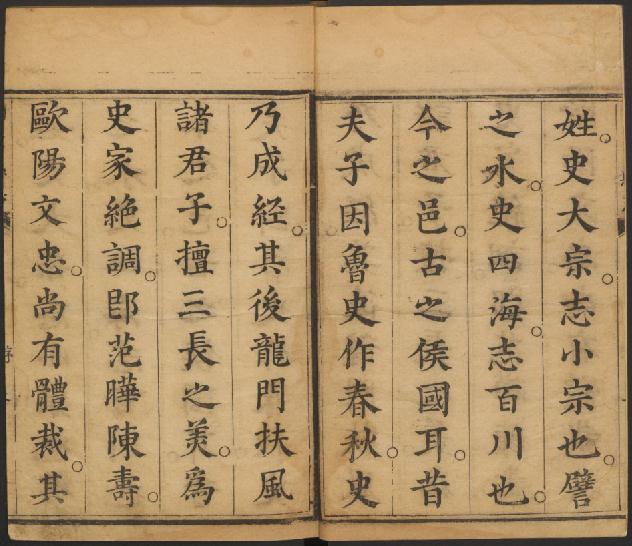 姓史大宗志小宗也譬
之水史四海志百川也
今之邑古之侯國耳昔
夫子因魯史作春秋史
乃成經其後龍門扶風
諸君子擅三長之美爲
史家絶調即范曄陳壽
歐陽文忠尚有體裁其